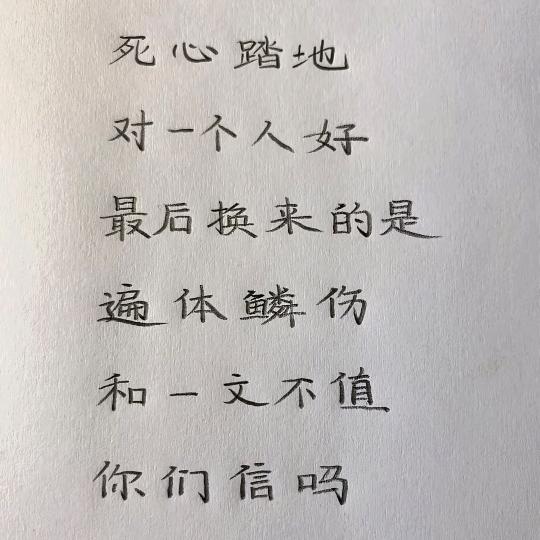 死心踏地
对一个人好
最后换来的是
遍体鳞伤
和一文不值
你们信吗